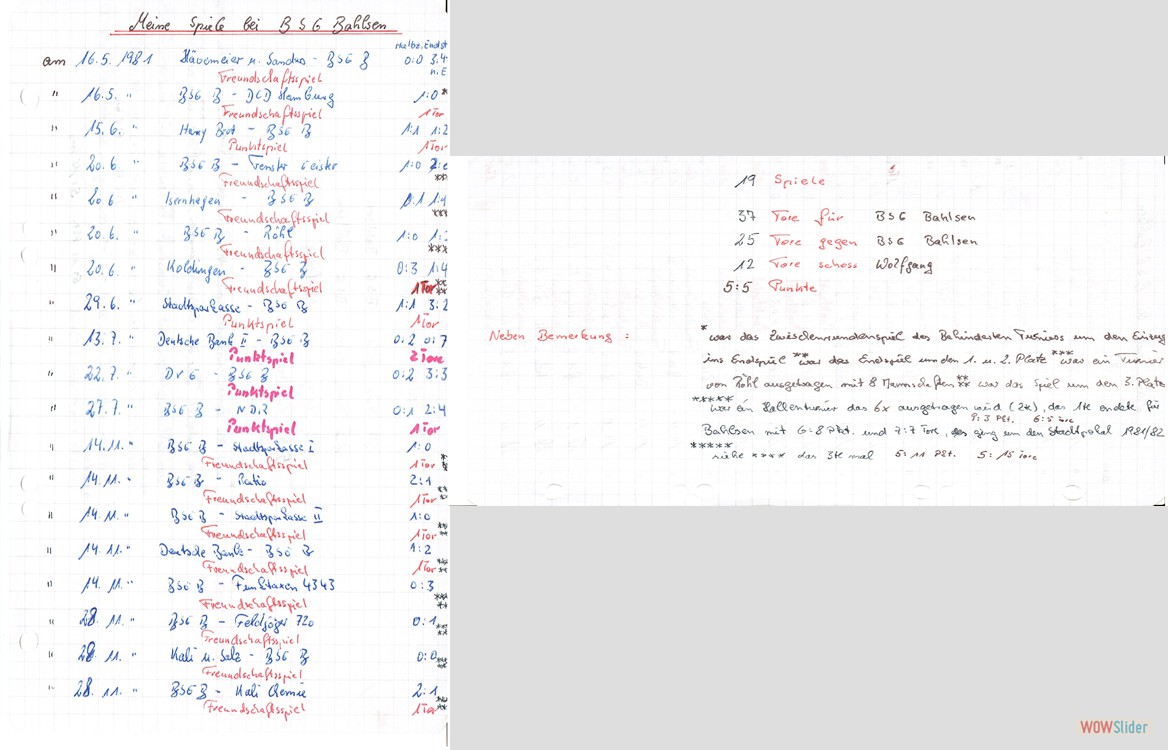 Meine Spiele bei BSG Bahlsen
Halbz. Endst
am 16.5. 1981 Hävemeier u. Sander - BSG B 0:0 3:4
n.E
Freundschaftsspiel
" 16.5. " BSG B - DCD Hamburg 1:0 *
Freundschaftsspiel 1Tor
" 15.6. " Harry Brot - BSG B 1:1 1:2
Punktspiel 1Tor
" 20.6 " BSG B - Fenster Geister 1:0
Freundschaftsspiel **
" 20.6 " Isernhagen - BSG B 0:1 1:4
Freundschaftsspiel ***
" 20.6. " BSG B - Röhl 1:0
Freundschaftsspiel ***
" 20.6. " Koldingen - BSG B 0:3 1:4
Freundschaftsspiel 1Tor **
" 29.6. " Stadtsparkasse - BSG B 1:1 3:2
Punktspiel 1Tor
" 13.7. " Deutsche Bank II - BSG B 0:2 0:7
Punktspiel 2Tore
" 22.7. " DVG - BSG B 0:2 3:3
Punktspiel
" 27.7. " BSG B - NDR 0:1 2:4
Punktspiel 1Tor
" 14.11. " BSG B - Stadtsparkasse I 1:0
Freundschaftsspiel 1Tor
" 14.11. " BSG B - Ratio 2:1
Freundschaftsspiel 1Tor
" 14.11. " BSG B - Stadtsparkasse II 1:0
Freundschaftsspiel 1Tor
" 14.11. " Deutsche Bank - BSG B 1:2
Freundschaftsspiel 1Tor
" 14.11. " BSG B - Funktaxen 4343 0:3
Freundschaftsspiel
" 28.11. " BSG B - Feldjäger 720 0:1
Freundschaftsspiel
" 28.11. " Kali u. Salz - BSG B 0:0
Freundschaftsspiel
" 28.11. " BSG B - Kali Chemie 2:1
Freundschaftsspiel 1Tor
19 Spiele
37 Tore für BSG Bahlsen
25 Tore gegen BSG Bahlsen
12 Tore schoss Wolfgang
5:5 Punkte
Neben Bemerkung : * war das Zwischenrundenspiel des Behinderten Turniers um den Einzug
ins Endspiel ** war das Endspiel um den 1. u. 2. Platz *** war ein Turnier
von Röhl ausgetragen mit 8 Mannschaften ** war das Spiel um den 3. Platz
***** war ein Hallenturnier das 6x ausgetragen wird (2te), das 1te endete für
9:3 Pkt. 6:5 Tore
Bahlsen mit 6:8 Pkt. und 7:7 Tore, es ging um den Stadtpokal 1981/82
***** siehe **** das 3te mal 5:11 Pkt. 5:15 Tore
WOWSlider